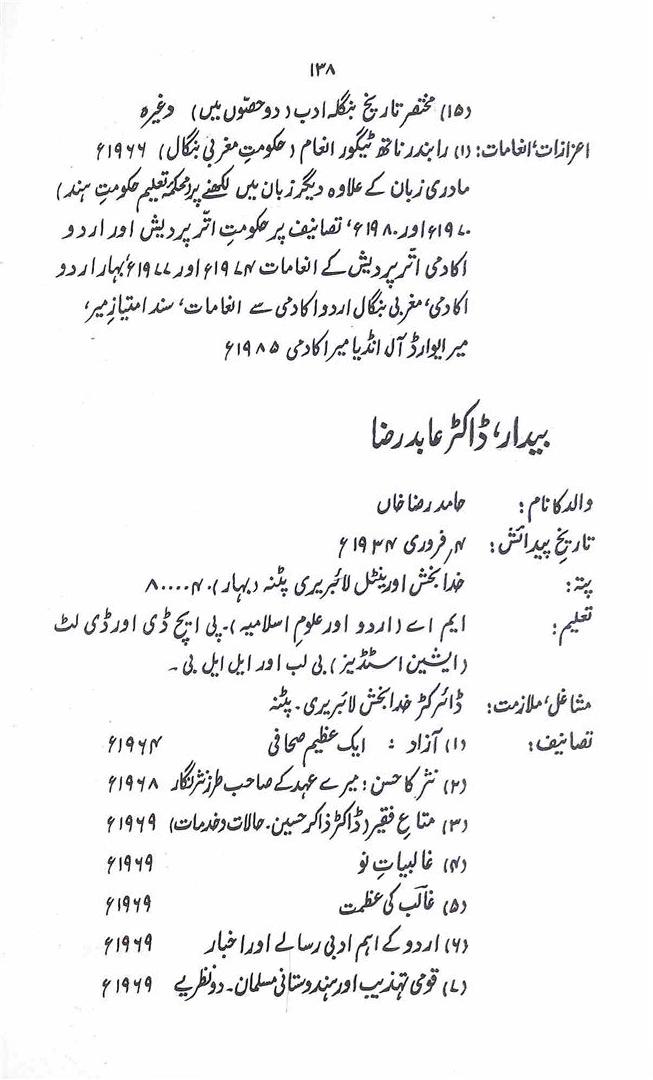 ۱۳۸
(۱۵) مختصر تاریخ بنگلہ ادب (دو حصّوں میں) وغیرہ
اعزازات، انعامات: (۱) رابندر ناتھ ٹیگور انعام (حکومتِ مغربی بنگال) ۱۹۶۶ء
مادری زبان کے علاوہ دیگر زبان میں لکھنے پر (محکمۂ تعلیم حکومتِ ہند)
۱۹۷۰ء اور ۱۹۸۰ء، تصانیف پر حکومتِ اتّر پردیش اور اردو
اکادمی اتّر پردیش کے انعامات ۱۹۷۴ء اور ۱۹۷۷ء، بہار اردو
اکادمی، مغربی بنگال اردو اکادمی سے انعامات، سند امتیازِ میر،
میر ایوارڈ آل انڈیا میر اکادمی ۱۹۸۵ء
بیدار، ڈاکٹر عابد رضا
والد کا نام: حامد رضا خاں
تاریخِ پیدائش: ۴؍ فروری ۱۹۳۴ء
پتہ: خدا بخش اورینٹل لائبریری پٹنہ (بہار)۔ ۸۰۰۰۰۴
تعلیم: ایم اے (اردو اور علومِ اسلامیہ)۔ پی ایچ ڈی اور ڈی لٹ
(ایشین اسٹڈیز) بی لب اور ایل ایل بی۔
مشاغل، ملازمت: ڈائرکٹر خدا بخش لائبریری۔ پٹنہ
تصانیف: (۱) آزاد : ایک عظیم صحافی ۱۹۶۴ء
(۲) نثر کا حسن : میرے عہد کے صاحب طرز نثر نگار ۱۹۶۸ء
(۳) متاعِ فقیر (ڈاکٹر ذاکر حسین۔ حالات و خدمات) ۱۹۶۹ء
(۴) غالبیاتِ نو ۱۹۶۹ء
(۵) غالؔب کی عظمت ۱۹۶۹ء
(۶) اردو کے اہم ادبی رسالے اور اخبار ۱۹۶۹ء
(۷) قومی تہذیب اور ہندوستانی مسلمان۔ دو نظریے ۱۹۶۹ء